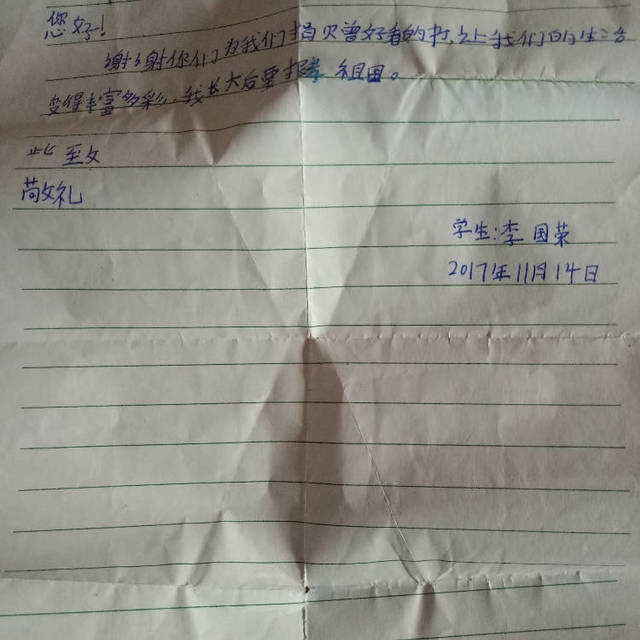 您好!
谢谢你们为我们捐贝曾好看的书,让我们的生活
变得丰富多彩,我长大后要报 祖国。
此 至文
苟文礼
学生:李国荣
2017年11月14日